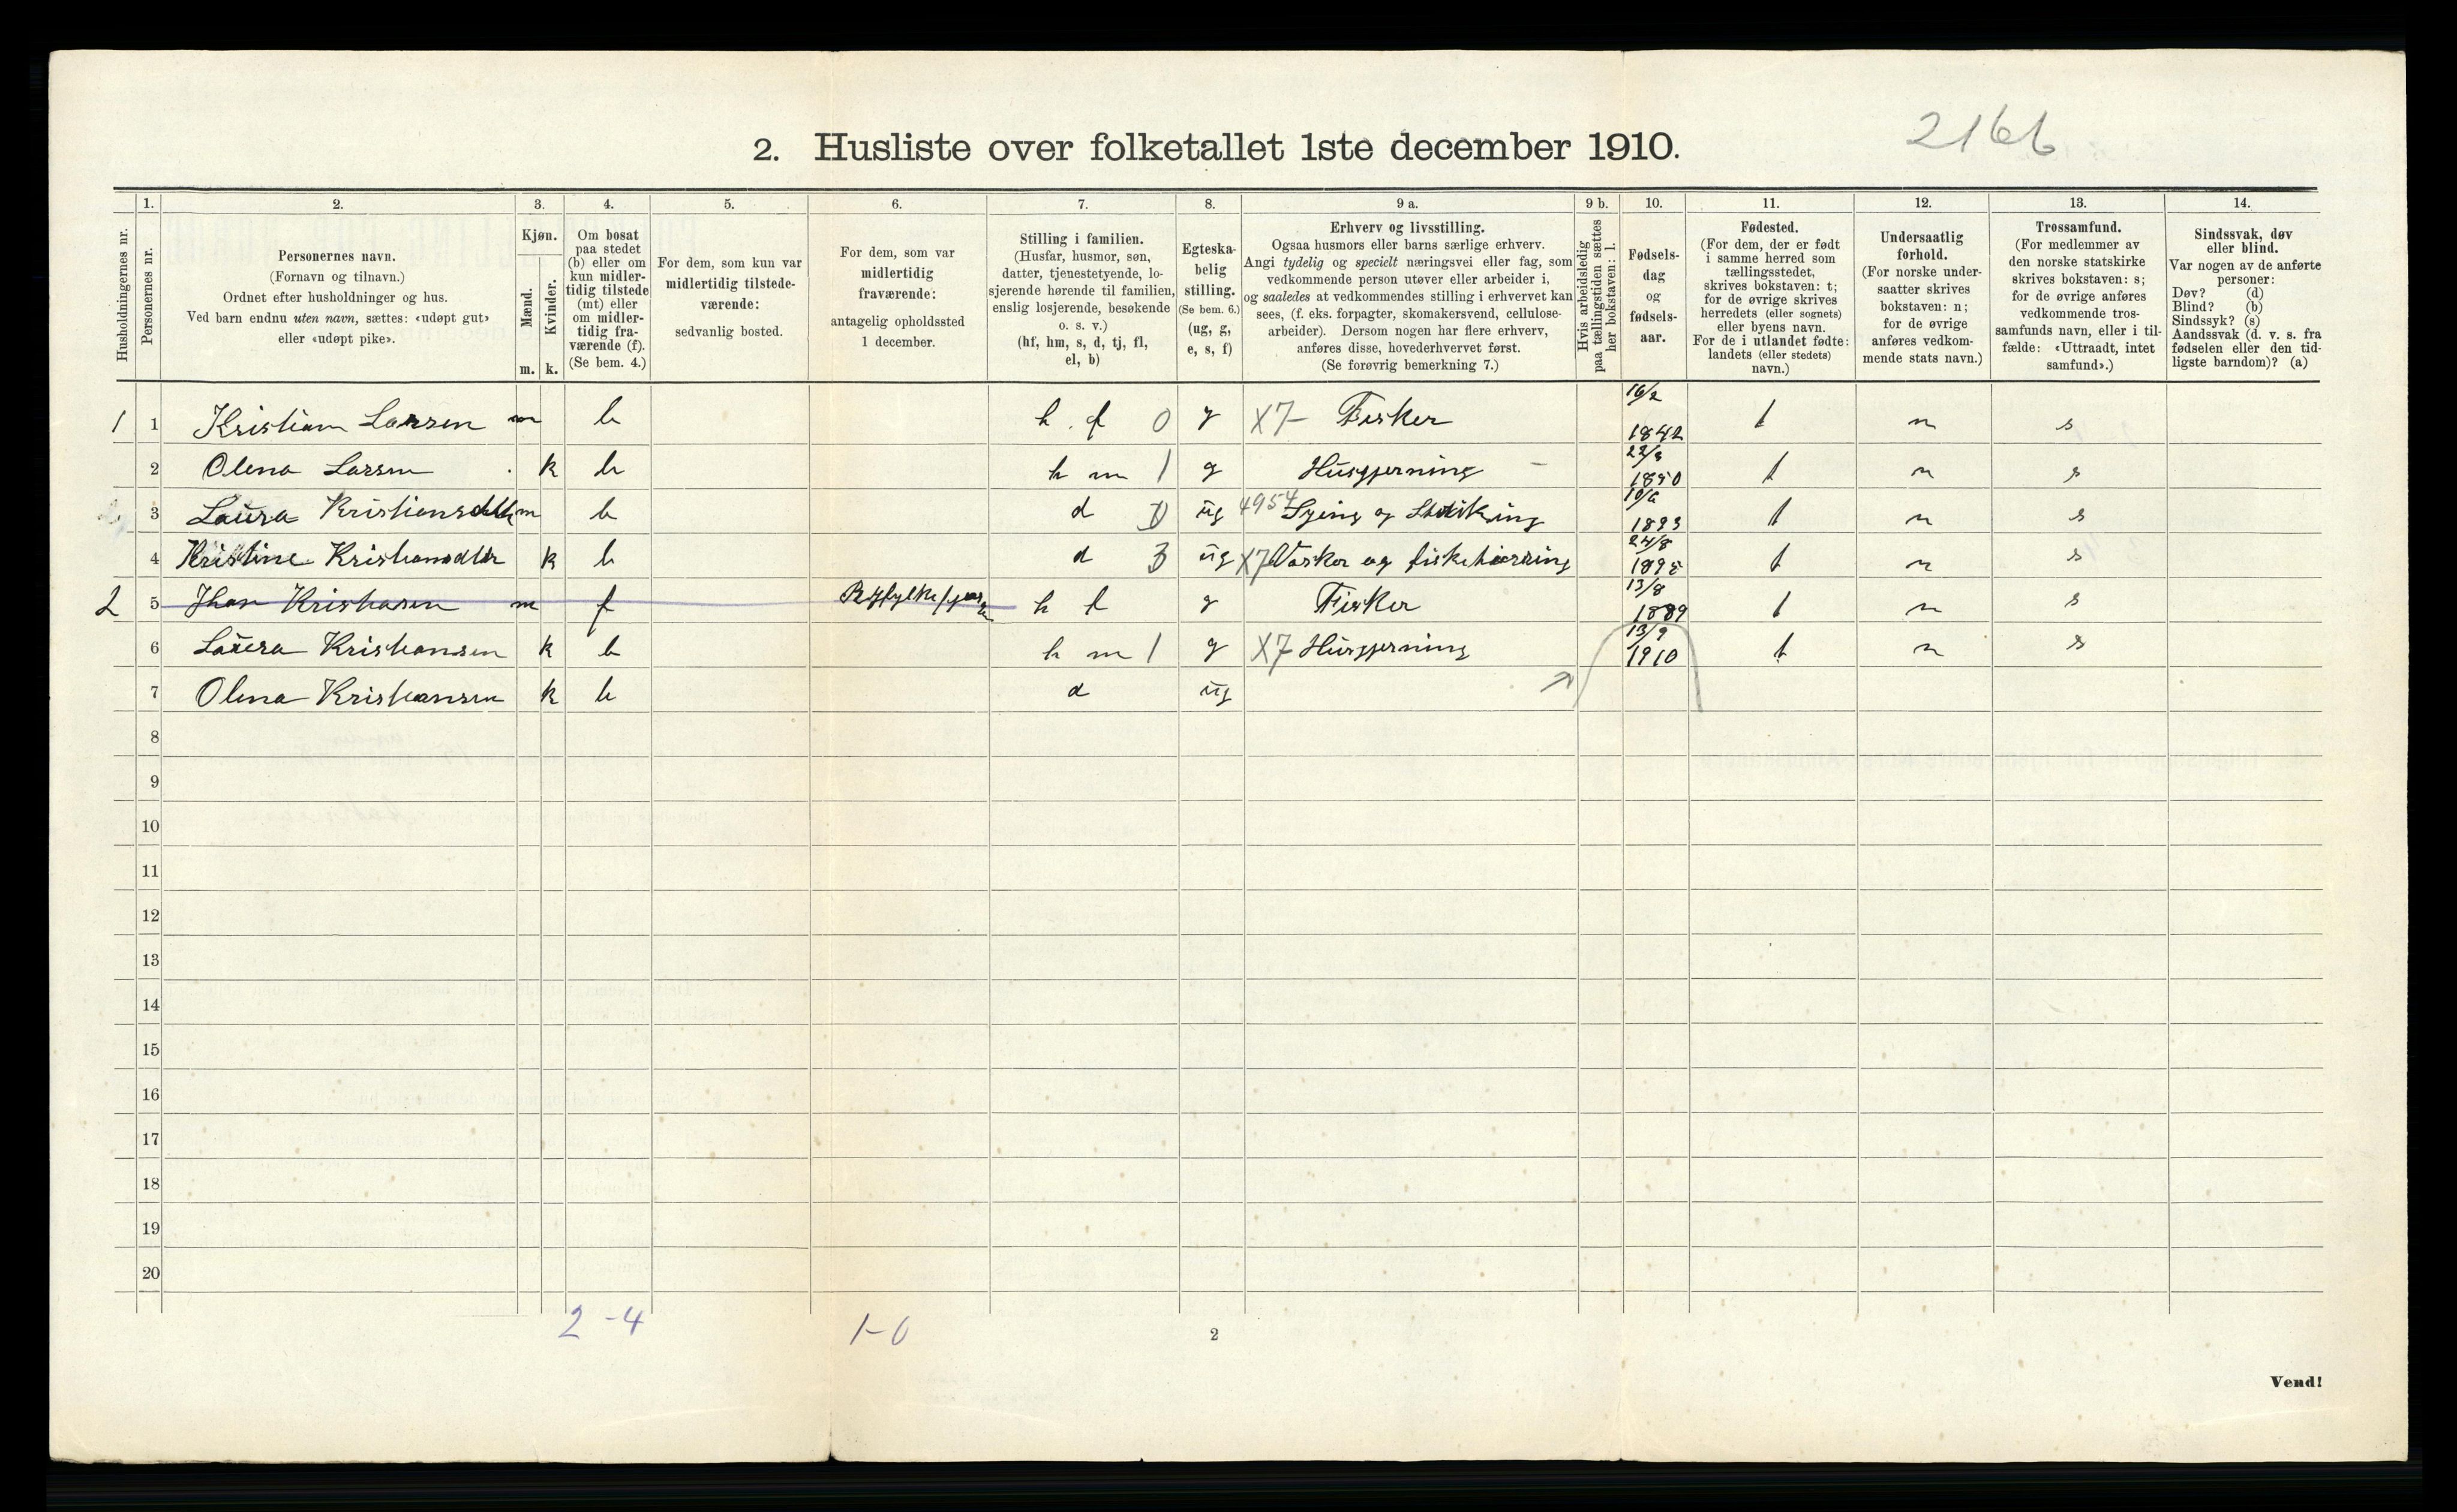 2166
2. Husliste over folketallet 1ste december 1910.
1. 2. 3. 4. 5. 6. 7. 8. 9 a. 9 b. 10. 11. 12. 13. 14.
Husholdningernes nr.
Personernes nr.
Personernes navn.
(Fornavn og tilnavn.)
Ordnet efter husholdninger og hus.
Ved barn endnu uten navn, sættes: «udøpt gut»
eller «udøpt pike».
Kjøn.
Mænd.
Kvinder.
m. k.
Om bosat
paa stedet
(b) eller om
kun midler-
tidig tilstede
(mt) eller
om midler-
tidig fra-
værende (f).
(Se bem. 4.)
For dem, som kun var
midlertidig tilstede-
værende:
sedvanlig bosted.
For dem, som var
midlertidig
fraværende:
antagelig opholdssted
1 december.
Stilling i familien.
(Husfar, husmor, søn,
datter, tjenestetyende, lo-
sjerende hørende til familien,
enslig losjerende, besøkende
o. s. v.)
(hf, hm, s, d, tj, fl,
el, b)
Egteska-
belig
stilling.
(Se bem. 6.)
(ug, g,
e, s, f)
Erhverv og livsstilling.
Ogsaa husmors eller barns særlige erhverv.
Angi tydelig og specielt næringsvei eller fag, som
vedkommende person utøver eller arbeider i,
og saaledes at vedkommendes stilling i erhvervet kan
sees, (f. eks. forpagter, skomakersvend, cellulose-
arbeider). Dersom nogen har flere erhverv,
anføres disse, hovederhvervet først.
(Se forøvrig bemerkning 7.)
Hvis arbeidsledig
paa tællingstiden sættes
her bokstaven: l.
Fødsels-
dag
og
fødsels-
aar.
Fødested.
(For dem, der er født
i samme herred som
tællingsstedet,
skrives bokstaven: t;
for de øvrige skrives
herredets (eller sognets)
eller byens navn.
For de i utlandet fødte:
landets (eller stedets)
navn.)
Undersaatlig
forhold.
(For norske under-
saatter skrives
bokstaven: n;
for de øvrige
anføres vedkom-
mende stats navn.)
Trossamfund.
(For medlemmer av
den norske statskirke
skrives bokstaven: s;
for de øvrige anføres
vedkommende tros-
samfunds navn, eller i til-
fælde: «Uttraadt, intet
samfund».)
Sindssvak, døv
eller blind.
Var nogen av de anførte
personer:
Døv? (d)
Blind? (b)
Sindssyk? (s)
Aandssvak (d. v. s. fra
fødselen eller den tid-
ligste barndom)? (a)
1 1 Kristian Larsen m b h f 0 g X7- Fisker 16/2 1842 t n s
2 Olena Larsen k b h m 1 g Husgjerning - 1850 t n s
3 Laura m b d ug 4954 Sying og 1893 t n s
4 Kristine k b d 3 ug X7 Vasker og 24/8 t n s
2 5 Kristiansen m f h f g Fisker 13/8 1889 t n s
6 Laura Kristiansen k b h m 1 g X7 Husgjerning 13/9 1910 t n s
7 Olena Kristiansen k b d ug
8
9
10
11
12
13
14
15
16
17
18
19
20
2 - 4 1-0
2
Vend!